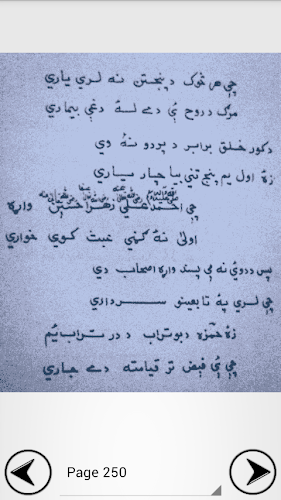 چې هر څوک د پنجتن نه لري ياري
مرګ د روح ئې دے لۀ دغې بيماري
د کور خلق برابر د پردو نۀ وي
زۀ اول يم پنج تني بيا چار ياري
چې احمد علي زهرا حسن واړه
اولیٰ نۀ ګڼي عبث کوي خواري
پس د دوئ نه مې پسند واړه اصحاب دي
چې لري په تابعينو سرداري
زۀ حمزه د بوتراب د در تراب يم
چې ئې فيض تر قيامته دے جاري
Page 250